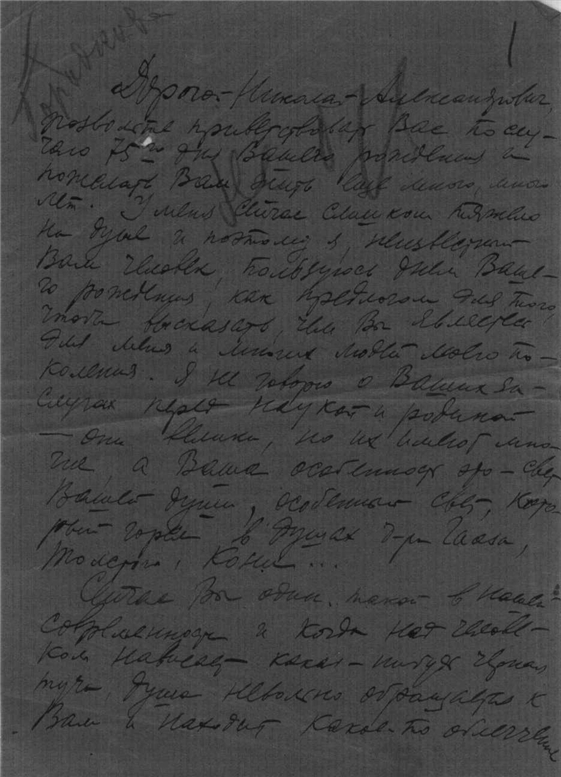 1
Дорогой Николай Александрович,
позвольте приветствовать Вас по слу-
чаю 75го дня Вашего рождения и
пожелать Вам жить еще много, много
лет. У меня сейчас слишком тяжело
на душе и поэтому я, неизвестный
Вам человек, пользуюсь днем Ваше-
го рождения, как предлогом для того,
чтобы высказать, чем Вы являетесь
для меня и многих людей моего по-
коления. Я не говорю о Ваших за-
слугах перед наукой и родиной
— они велики, но их имеют мно-
гие, а Ваша особенность это — свет
Вашей души, особенный свет, кото-
рый горел в душах д-ра Гааза,
Толстого, Кони...
Сейчас Вы один такой в нашей
современности и когда над челове-
ком нависает какая-нибудь черная
туча, душа невольно обращается к
Вам и находит какое-то облегчение